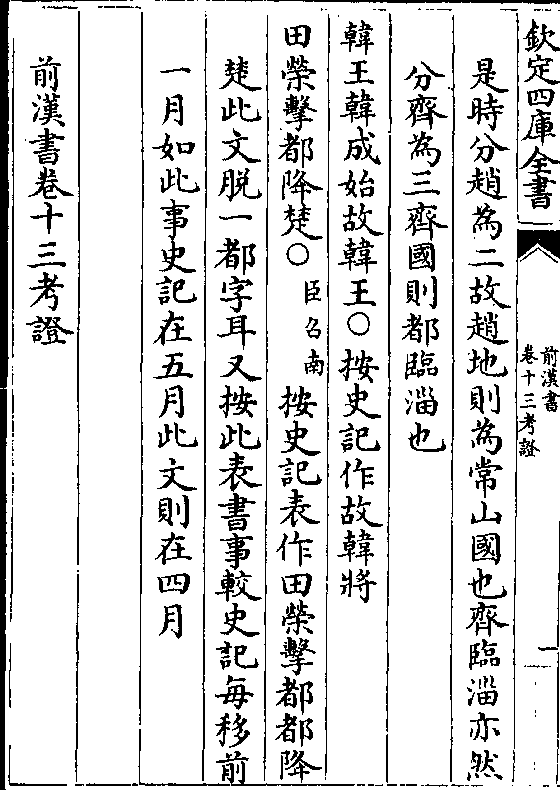 欽定四庫全書
前漢書
卷十三考證
一
是時分趙為二故趙地則為常山國也齊臨淄亦然
分齊為三齊國則都臨淄也
韓王韓成始故韓王○按史記作故韓將
田榮擊都降楚○臣召南按史記表作田榮擊都都降
楚此文脫一都字耳又按此表書事較史記每移前
一月如此事史記在五月此文則在四月
前漢書卷十三考證